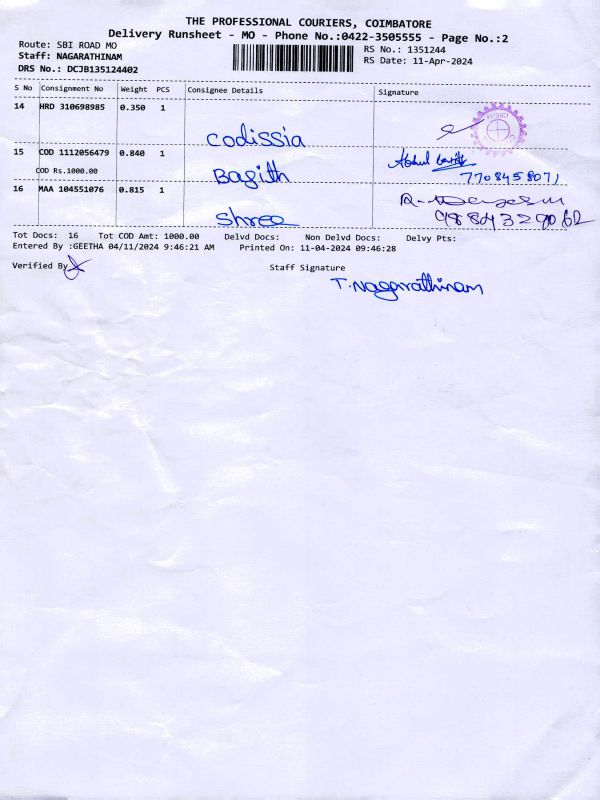 THE PROFESSIONAL COURIERS, COIMBATORE
Delivery Runsheet - MO - Phone No.:0422-3505555 - Page No.:2
Route: SBI ROAD MO
RS No.: 1351244
Staff: NAGARATHINAM
RS Date: 11-Apr-2024
DRS No.: DCJB135124402
S No Consignment No Weight PCS Consignee Details Signature
14 HRD 310698985 0.350 1
Codissia
15 COD 1112056479 0.840 1
COD Rs.1000.00
Bagith
Abdul
7708458071
16 MAA 104551076 0.815 1
Shree
Tot Docs: 16 Tot COD Amt: 1000.00 Delvd Docs: Non Delvd Docs: Delvy Pts:
Entered By :GEETHA 04/11/2024 9:46:21 AM Printed On: 11-04-2024 09:46:28
Verified By
Staff Signature
T.Nagarathinam